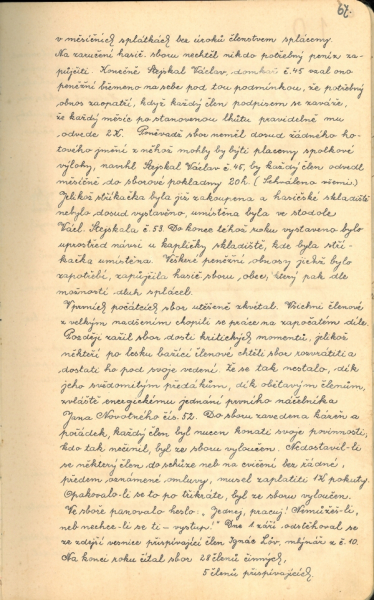 67.
v měsíčních splátkách bez úroků členstvem spláceny.
Na zaručení hasič. sboru nechtěl nikdo potřebný peníz za-
půjčiti. Konečně Stejskal Václav, domkař č. 45 vzal ono
peněžní břemeno na sebe pod tou podmínkou, že potřebný
obnos zaopatří, když každý člen podpisem se zaváže,
že každý měsíc po stanovenou lhůtu pravidelně mu
odvede 2K. Poněvadž sbor neměl dosud žádného ho-
tového jmění z něhož mohly by býti placeny spolkové
výlohy, navrhl Stejskal Václav č. 45, by každý člen odvedl
měsíčně do sborové pokladny 20h. (Schváleno všemi.)
Jelikož stříkačka byla již zakoupena a hasičské skladiště
nebylo dosud vystavěno, umístěna byla ve stodole
Václ. Stejskala č. 53. Do konce téhož roku vystavěno bylo
uprostřed návsi u kapličky skladiště, kde byla stří-
kačka umístěna. Veškeré peněžní obnosy jichž bylo
zapotřebí, zapůjčila hasič. sboru, obec, který pak dle
možnosti dluh splácel.
V prvních počátcích sbor utěšeně zkvétal. Všichni členové
s velkým nadšením chopili se práce na započatém díle.
Později zažil sbor dosti kritických momentů, jelikož
někteří po lesku bažící členové chtěli sbor rozvrátiti a
dostati ho pod svoje vedení. Že se tak nestalo, dík
jeho svědomitým předákům, dík obětavým členům,
zvláště energickému jednání prvního náčelníka
Jana Novotného čís. 52. Do sboru zavedena kázeň a
pořádek, každý člen byl nucen konati svoje povinnosti,
kdo tak nečinil, byl ze sboru vyloučen. Nedostavil-li
se některý člen do schůze neb na cvičení bez řádné,
předem oznámené omluvy, musel zaplatiti 1K pokuty.
Opakovalo-li se to po třikráte, byl ze sboru vyloučen.
Ve sboře panovalo heslo: "Jednej, pracuj! Nemůžeš-li,
neb nechce-li se ti – vystup!" Dne 1. září odstěhoval se
ze zdejší vesnice přispívající člen Ignác Löv, mlynář z č. 10.
Na konci roku čítal sbor 28 členů činných,
5 členů přispívajících.